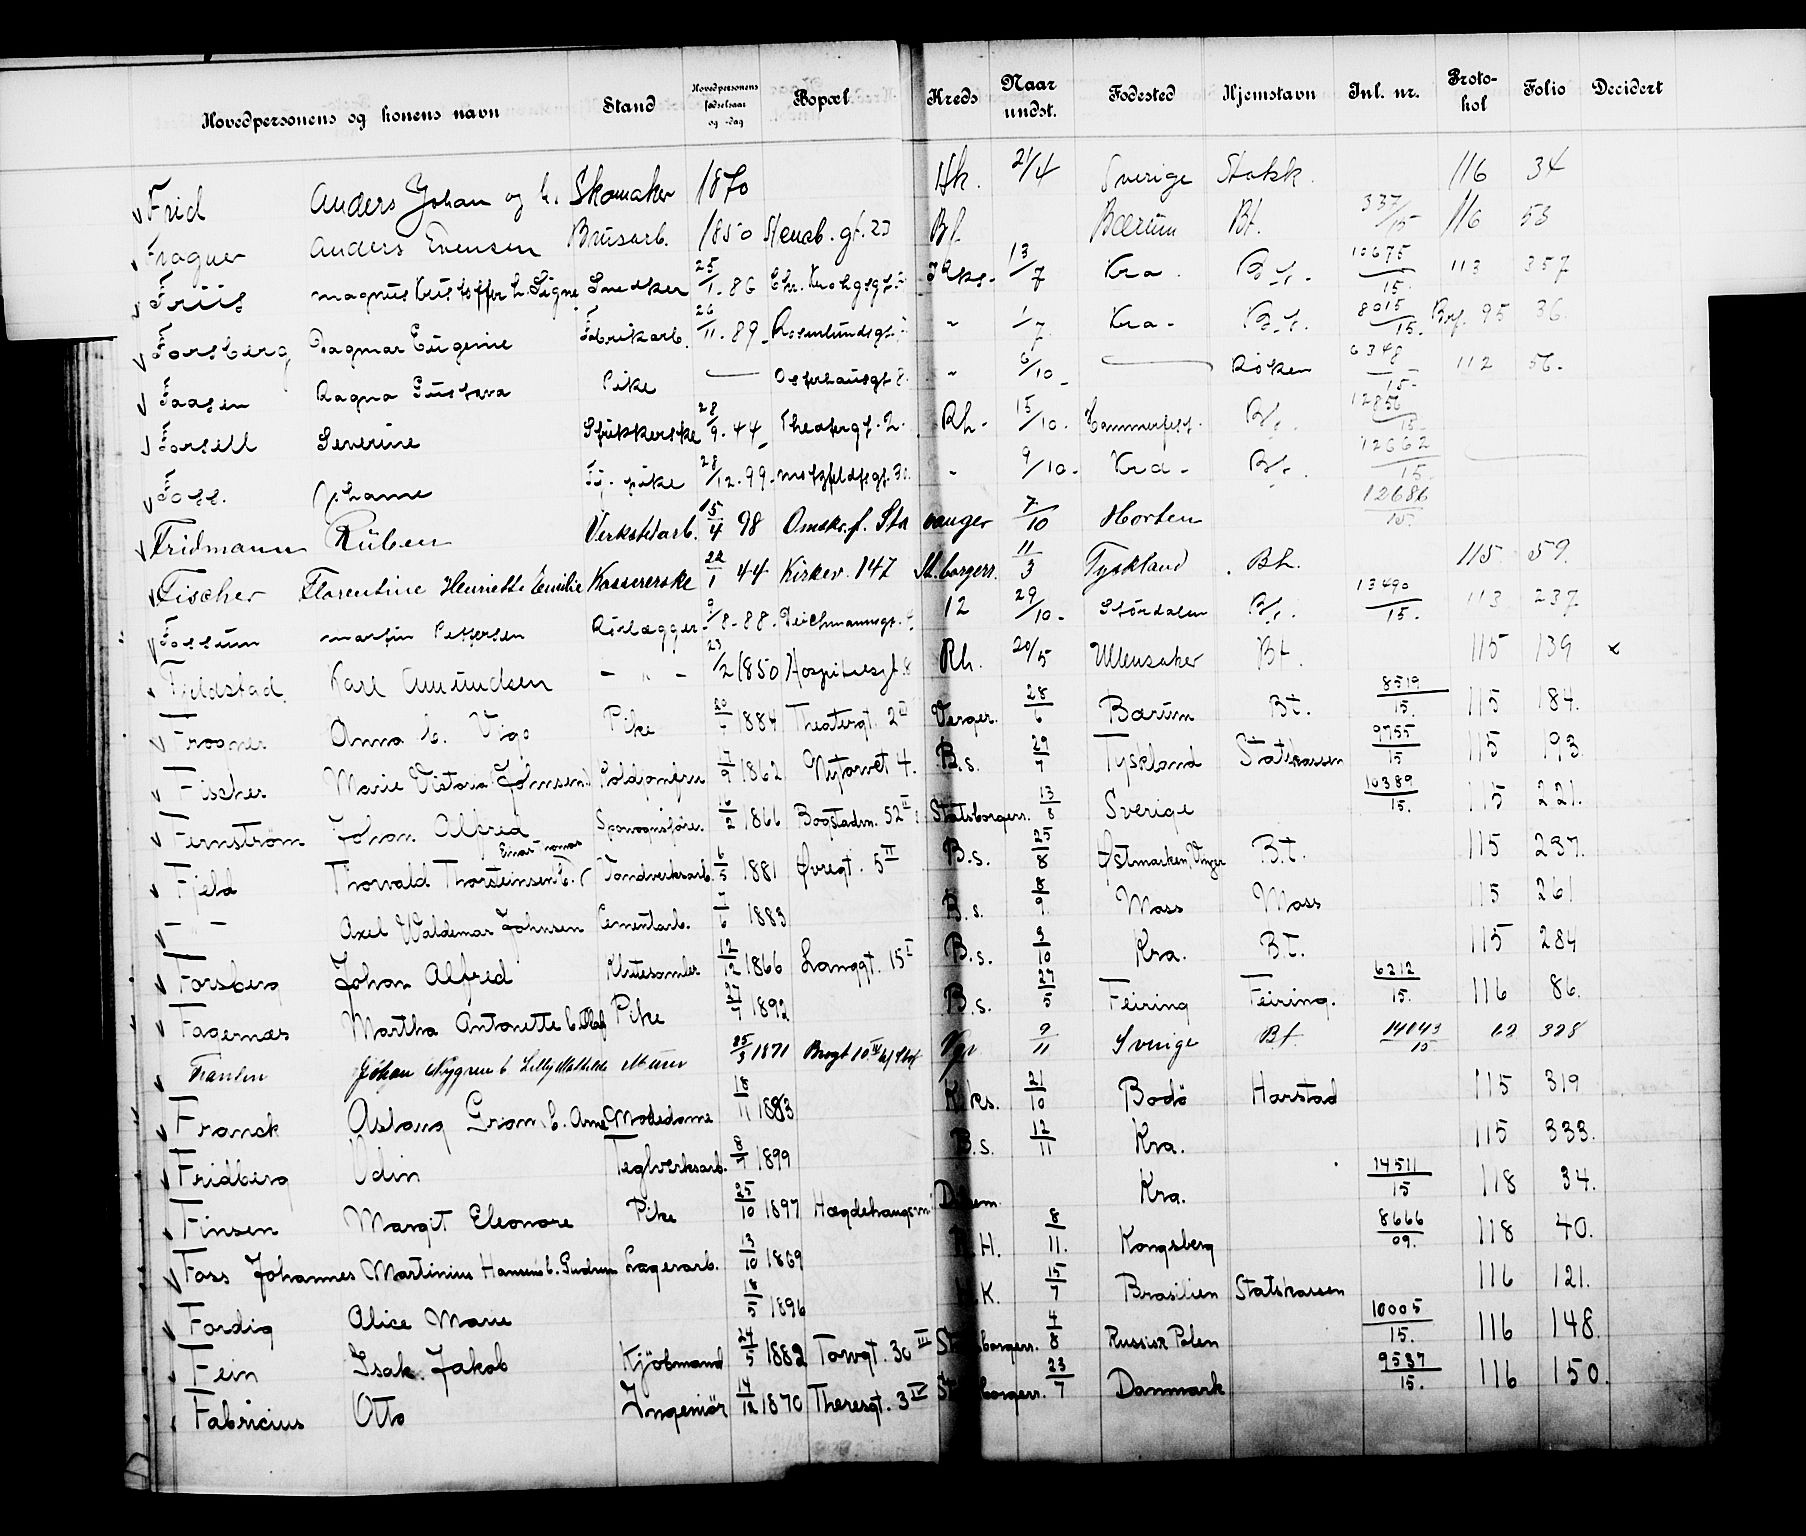 Hovedpersonens og konens navn Stand Hovedpersonens fødselsaar og -dag Bopæl Kreds Naar undst. Fødested Hjemstavn Inl. nr. Protokol Folio Decidert
Frid Anders Johan og h. Skomaker 1870 Hk. 21/4 Sverige Stokk. 116 34
Frogner Anders Evensen Brusarb. 1850 Stensb. gt. 23 Bf. Bærum Bt. 337/15 116 53
Friis Magnus Kristoffer h. Signe Snedker 25/1 86 Chr. Krohgsgt. 13/7 Kra. B.t. 10675/15 113 357
Forsberg Dagmar Eugenie Fabrikarb. 26/11 89 Rosenlundsgt. " 1/7 Kra. B.t. 8015/15. 95 36.
Faasen Ragna Gustava Pike Osterhausgt. 8. " 6/10 Røken 6348/15 112 56.
Forsell Severine Strikkerske 28/9 44 Theatergt. 2. Rh. 15/10 Hammerfest. B.t. 12856/15
Foss. Johanne Fj. pike 28/12 99 Motzfeldtsgt. " 9/10 Kra. B.t. 12662/15
Fridmann Rüben Verkstedarb. 15/4 98 Omskr. f. Stavanger 7/10 Horten 12686/15.
Fischer Florentine Henriette Emilie Kassererske 22/1 44 Kirkev. 147 St.borgerr. 11/3 Tyskland Bt. 115 59.
Fossum Martin Pettersen Rørlægger 9/8 88. Deichmannsgt. 12 29/10 Stördalen B.t. 13490/15. 113 237
Fjeldstad Karl Amundsen - " - 23/2 1850 Hospitalsgt. 8 Rh. 20/5 Ullensaker Bt. 115 139 x
Frogner Anna C. Vigo Pike 1884 Theatergt. 2 II Verger. 28/6 Bærum Bt. 8519/15. 115 184.
Fischer Marie Viktoria (Johnsen) 17/9 1862 Nytorvet 4. B.s. 29/7 Tyskland Statskassen 9755/15 115 193.
Fernström Johan Alfred Sporvognsfører. 16/2 1866 Bogstadvn. 52 II Statsborgerr. 13/8 Sverige 10389/15. 115 221.
Fjeld Thorvald Thorsteinsen Vandverksarb. 6/5 1881 Øvregt. 5 II B.s. 25/8 Østmarken, B.t. 115 237.
- - Axel Waldemar Johnsen Cementarb. 1883 B.s. 8/9 Moss Moss 115 261
Forsberg Johan Alfred Klutesamler 12/12 1866 Langgt. 15 I B.s. 9/10 Kra. B.t. 115 284
Fagernæs Martha Antonette C. Olaf Pike 27/7 1892 B.s. 27/5 Feiring Feiring. 6212/15. 116 86.
Johan Nygren Murer 25/3 1871 9/11 Sverige Bt. 14043/15 62 328
Franck Aslaug Gron C. Arne Modedame 18/11 1883 K.ks. 21/10 Bodö Harstad 115 319
Fridberg Odin Teglverksarb. 8/7 1899 B.s. 12/11 Kra. 115 333.
Finsen Margit Eleonore Pike 25/10 1897 Hægdehaugsvn. Kra. 14511/15 118 34.
Foss Johannes Martinius Hansen C. Gudrun Lagerarb. 13/10 1869 H. 8/11. Kongsberg 8666/09. 118 40.
Fordig Alice Marie 18/5 1896 K. 15/7 Brasilien Statskassen 116 121.
Fein Isak Jakob Kjöbmand 24/5 1882 Torvgt. 30 III St borgerr. 4/8 Russisk Polen 10005/15. 116 148.
Fabricius Otto Ingeniör 14/12 1870 Theresgt. 3 IV St borgerr. 23/7 Danmark 9537/15. 116 150.